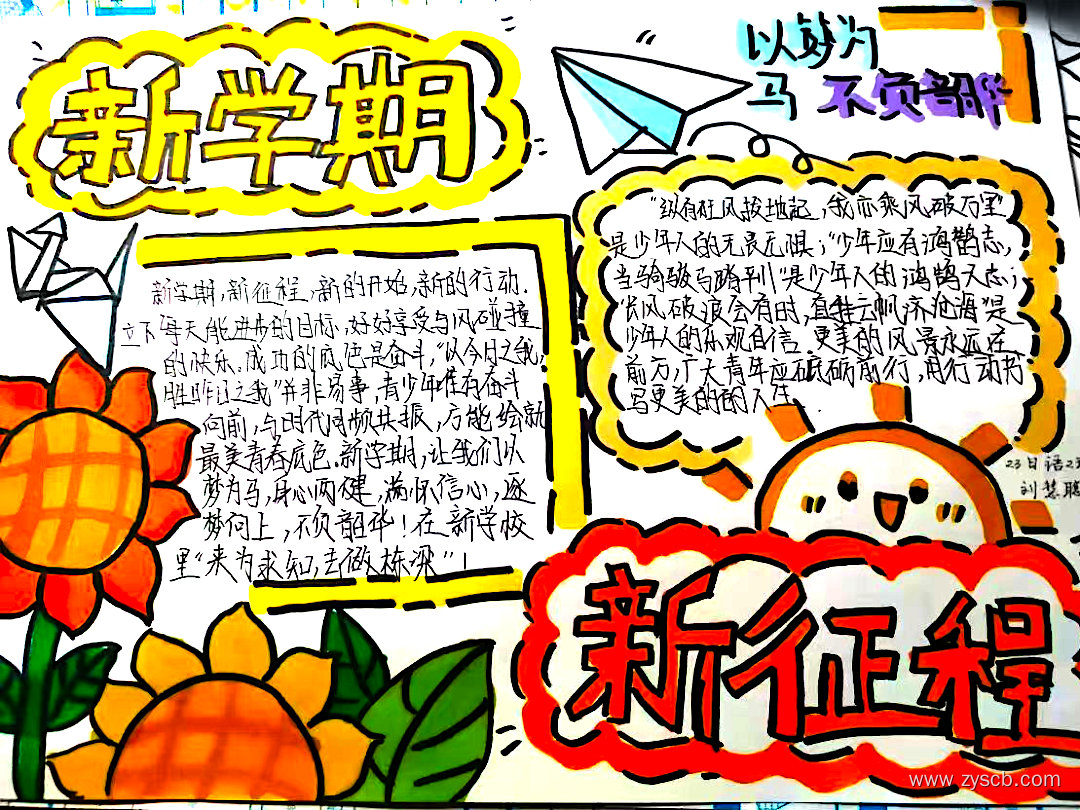 新学期
以梦为
马 不负韶华
"纵有狂风拔地起,我亦乘风破万里"
是少年人的无畏无惧;"少年应有鸿鹄志,
当骑骏马踏平川"是少年人的鸿鹄大志;
"长风破浪会有时,直挂云帆济沧海"是
少年人的乐观自信。更美的风景永远在
前方,广大青年应砥砺前行,用行动书
写更美的的人生.
新学期,新征程,新的开始,新的行动.
立下每天能进步的目标,好好享受与风碰撞
的快乐.成功的底色是奋斗,"以今日之我,
胜昨日之我"并非易事,青少年唯有奋斗
向前,与时代同频共振,方能绘就
最美青春底色.新学期,让我们以
梦为马,身心两健,满怀信心,逐
梦向上,不负韶华!在新学校
里"来为求知,去做栋梁"!
23日语2班
刘慧聪
新征程
www.zyscb.com